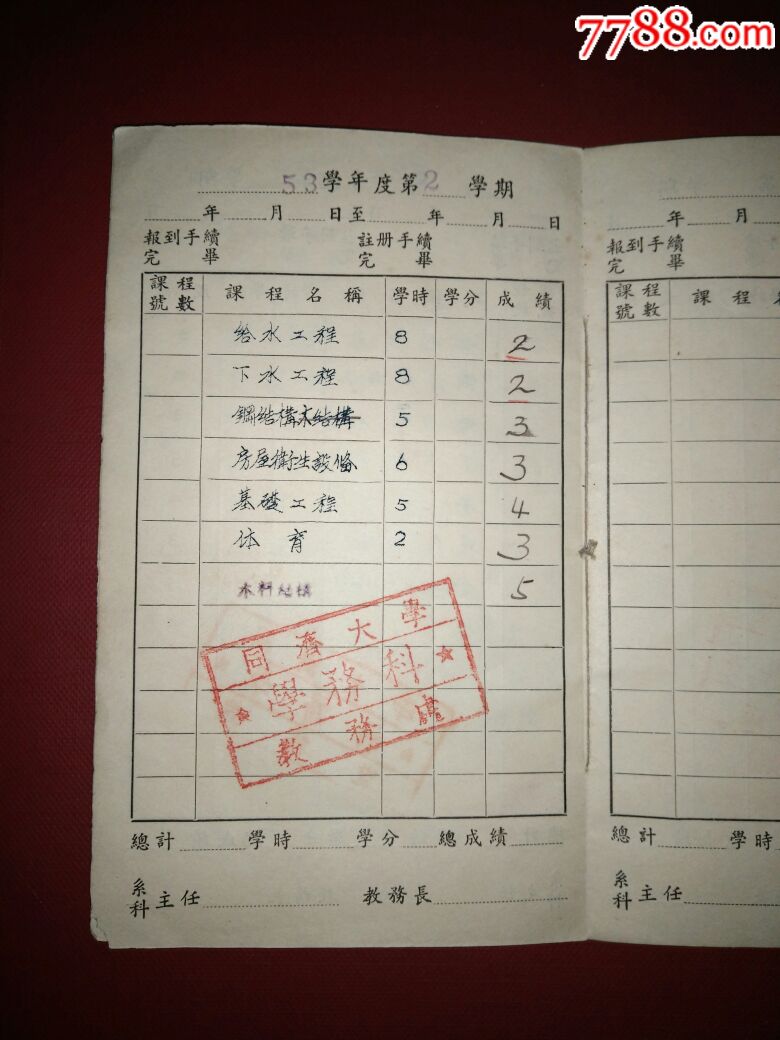 7788.com
53學年度第2學期
年 月 日至 年 月 日
報到手續完畢 註冊手續完畢
課程號數 課程名稱 學時 學分 成績
給水工程 8 2
下水工程 8 2
鋼結構木結構 5 3
房屋衛生設俻 6 3
基礎工程 5 4
体育 2 3
木材結構 5
同濟大學
學務科
教務處
總計 學時 學分 總成績
系科主任 教務長
年 月
報到手續完畢
課程號數 課程名
總計 學時
系科主任